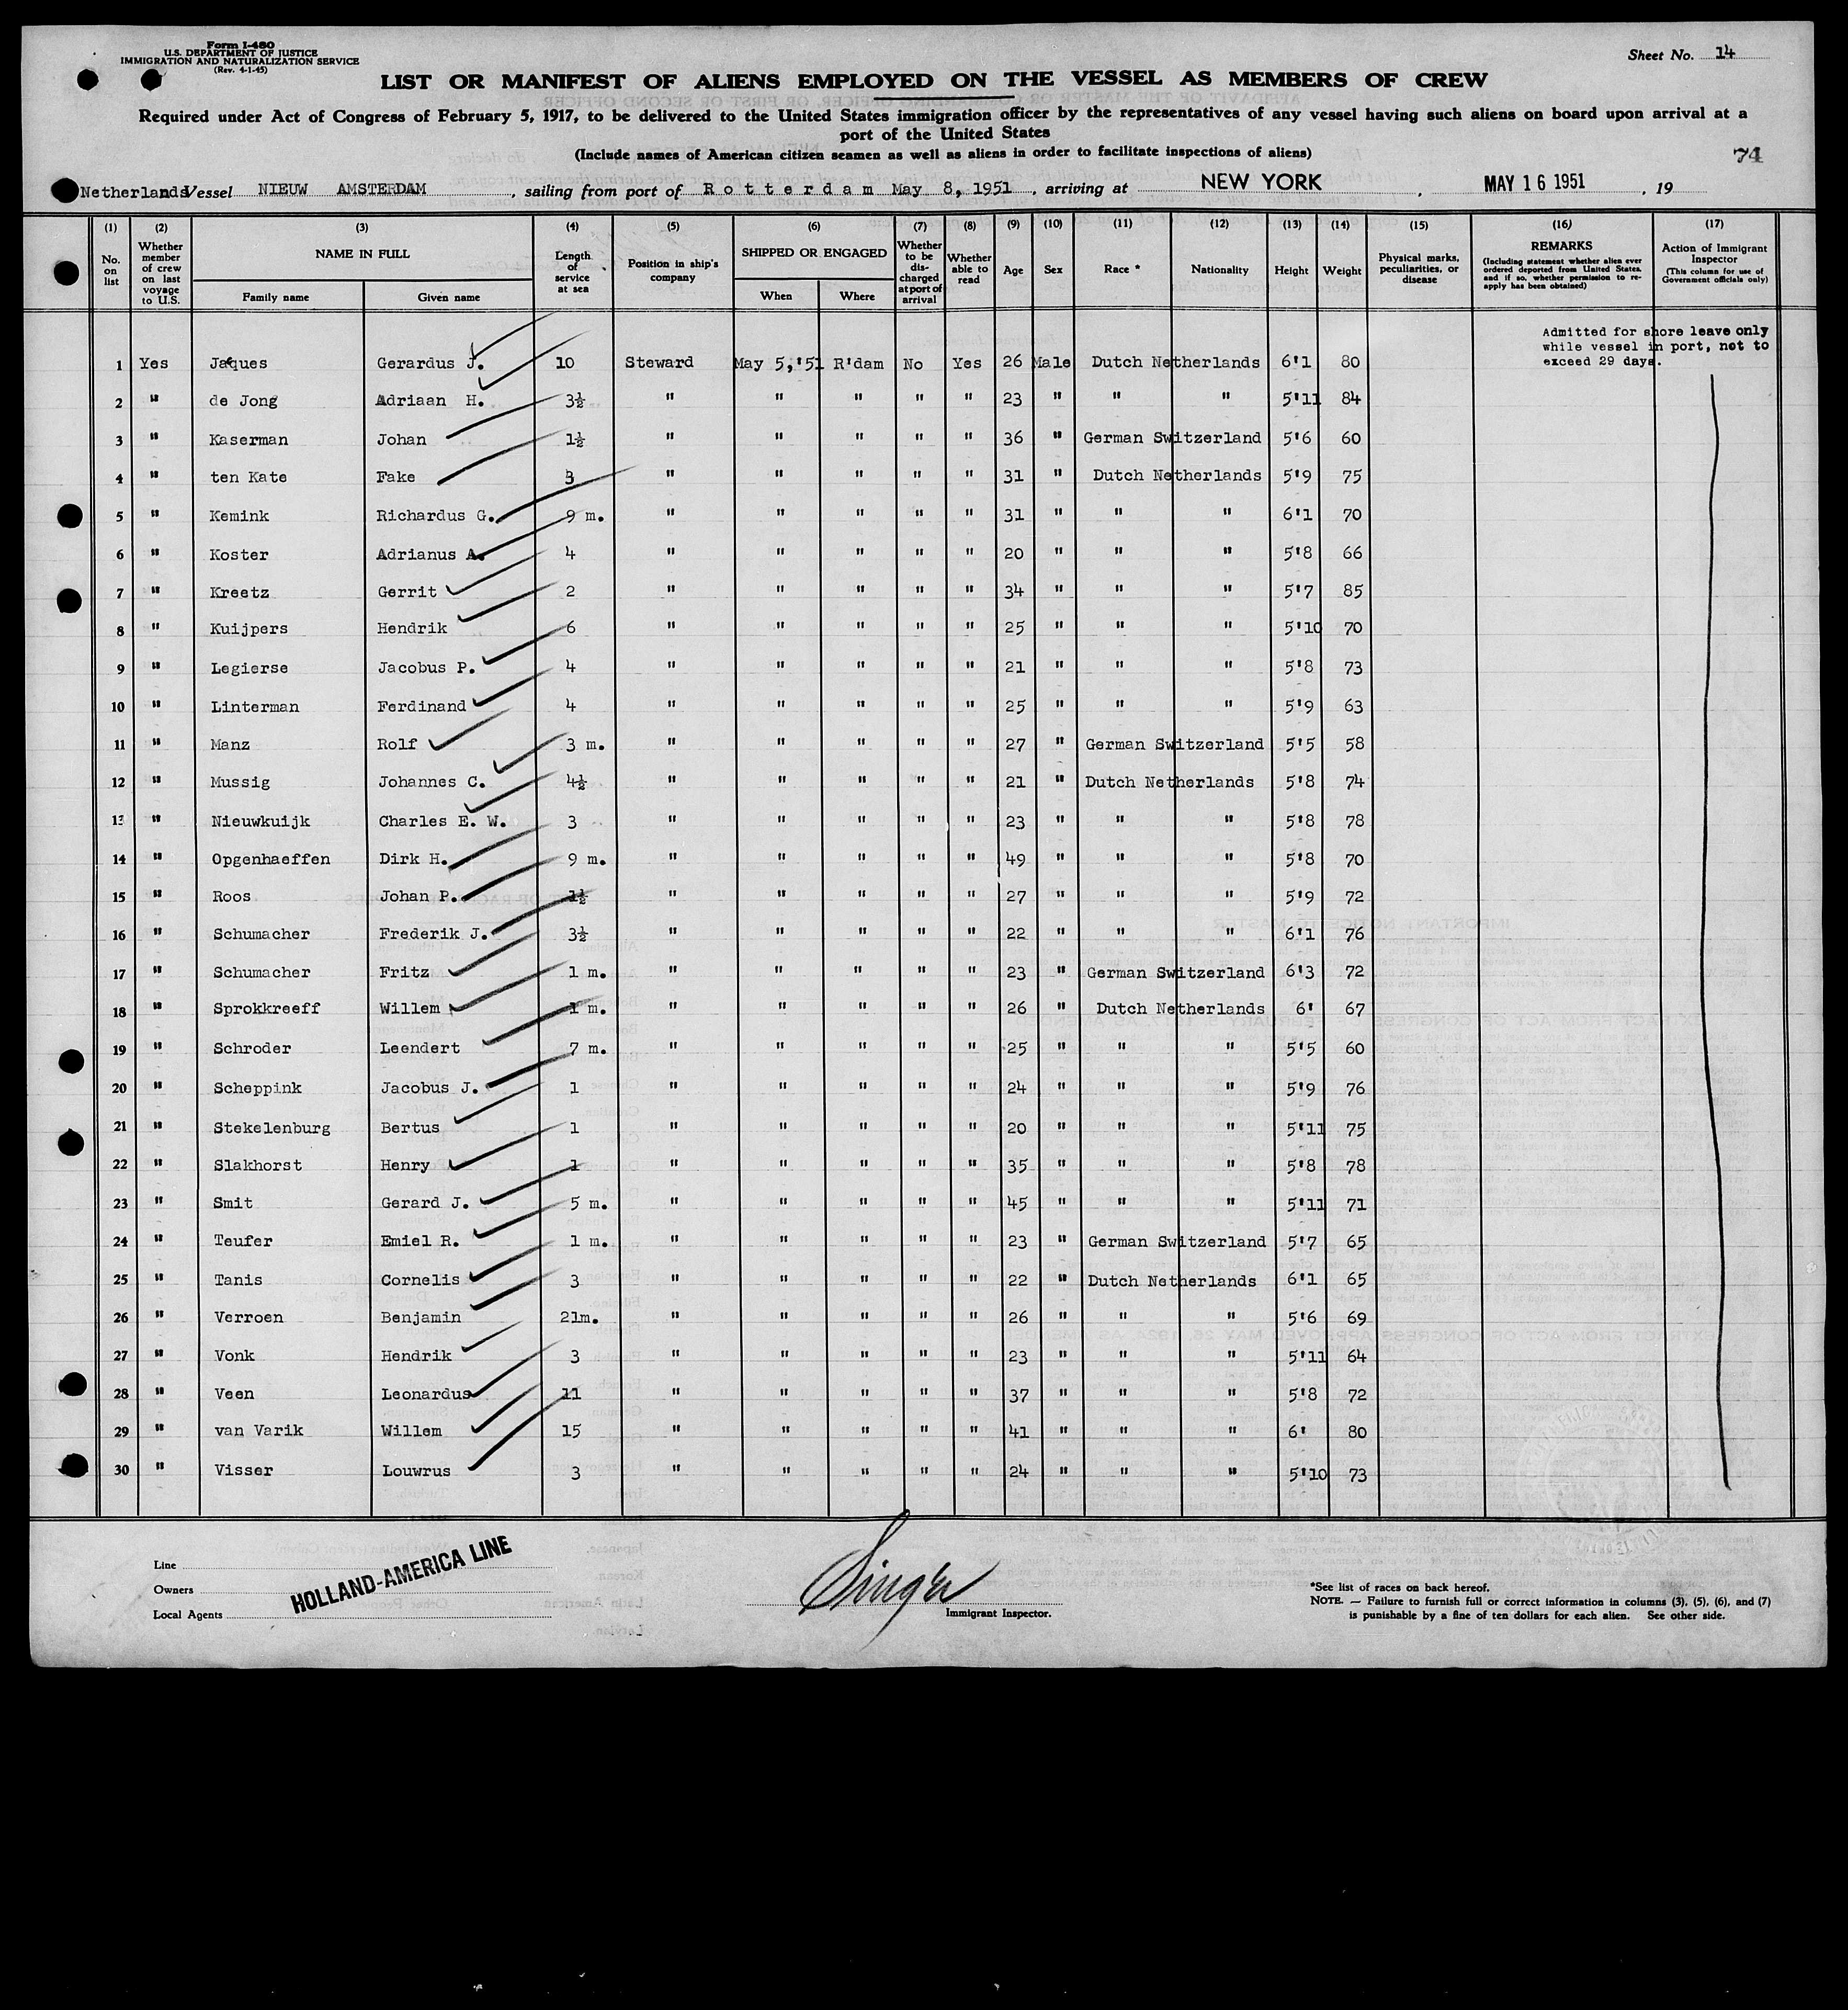 Form I-480
U.S. DEPARTMENT OF JUSTICE
IMMIGRATION AND NATURALIZATION SERVICE
(Rev. 4-1-45)
Sheet No. 14
LIST OR MANIFEST OF ALIENS EMPLOYED ON THE VESSEL AS MEMBERS OF CREW
Required under Act of Congress of February 5, 1917, to be delivered to the United States immigration officer by the representatives of any vessel having such aliens on board upon arrival at a
port of the United States
(Include names of American citizen seamen as well as aliens in order to facilitate inspections of aliens)
74
Netherlands Vessel NIEUW AMSTERDAM, sailing from port of Rotterdam May 8, 1951, arriving at NEW YORK, MAY 16 1951, 19
(1) (2) (3) (4) (5) (6) (7) (8) (9) (10) (11) (12) (13) (14) (15) (16) (17)
No. on list
Whether member of crew on last voyage to U.S.
NAME IN FULL
Family name Given name
Length of service at sea
Position in ship's company
SHIPPED OR ENGAGED
When Where
Whether to be discharged at port of arrival
Whether able to read
Age
Sex
Race *
Nationality
Height
Weight
Physical marks, peculiarities, or disease
REMARKS
(Including statement whether alien ever ordered deported from United States, and if so, whether permission to reapply has been obtained)
Action of Immigrant Inspector
(This column for use of Government officials only)
Admitted for shore leave only
while vessel in port, not to
exceed 29 days.
1 Yes Jaques Gerardus J. 10 Steward May 5,'51 R'dam No Yes 26 Male Dutch Netherlands 6'1 80
2 " de Jong Adriaan H. 3½ " " " " " 23 " " " 5'11 84
3 " Kaserman Johan 1½ " " " " " 36 " German Switzerland 5'6 60
4 " ten Kate Fake 3 " " " " " 31 " Dutch Netherlands 5'9 75
5 " Kemink Richardus G. 9 m. " " " " " 31 " " " 6'1 70
6 " Koster Adrianus A. 4 " " " " " 20 " " " 5'8 66
7 " Kreetz Gerrit 2 " " " " " 34 " " " 5'7 85
8 " Kuijpers Hendrik 6 " " " " " 25 " " " 5'10 70
9 " Legierse Jacobus P. 4 " " " " " 21 " " " 5'8 73
10 " Linterman Ferdinand 4 " " " " " 25 " " " 5'9 63
11 " Manz Rolf 3 m. " " " " " 27 " German Switzerland 5'5 58
12 " Mussig Johannes C. 4½ " " " " " 21 " Dutch Netherlands 5'8 74
13 " Nieuwkuijk Charles E. W. 3 " " " " " 23 " " " 5'8 78
14 " Opgenhaeffen Dirk H. 9 m. " " " " " 49 " " " 5'8 70
15 " Roos Johan P. 1½ " " " " " 27 " " " 5'9 72
16 " Schumacher Frederik J. 3½ " " " " " 22 " " " 6'1 76
17 " Schumacher Fritz 1 m. " " " " " 23 " German Switzerland 6'3 72
18 " Sprokkreeff Willem 1 m. " " " " " 26 " Dutch Netherlands 6' 67
19 " Schroder Leendert 7 m. " " " " " 25 " " " 5'5 60
20 " Scheppink Jacobus J. 1 " " " " " 24 " " " 5'9 76
21 " Stekelenburg Bertus 1 " " " " " 20 " " " 5'11 75
22 " Slakhorst Henry 1 " " " " " 35 " " " 5'8 78
23 " Smit Gerard J. 5 m. " " " " " 45 " " " 5'11 71
24 " Teufer Emiel R. 1 m. " " " " " 23 " German Switzerland 5'7 65
25 " Tanis Cornelis 3 " " " " " 22 " Dutch Netherlands 6'1 65
26 " Verroen Benjamin 21m. " " " " " 26 " " " 5'6 69
27 " Vonk Hendrik 3 " " " " " 23 " " " 5'11 64
28 " Veen Leonardus 11 " " " " " 37 " " " 5'8 72
29 " van Varik Willem 15 " " " " " 41 " " " 6' 80
30 " Visser Louwrus 3 " " " " " 24 " " " 5'10 73
Line
Owners
Local Agents
HOLLAND-AMERICA LINE
Singer
Immigrant Inspector.
*See list of races on back hereof.
NOTE. — Failure to furnish full or correct information in columns (3), (5), (6), and (7)
is punishable by a fine of ten dollars for each alien. See other side.